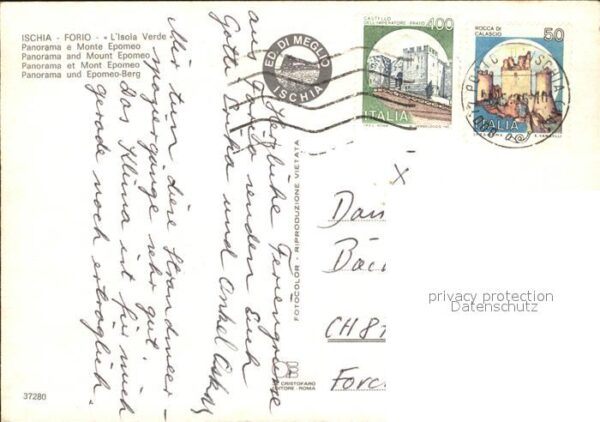 ISCHIA - FORIO - «L'Isola Verde»
Panorama e Monte Epomeo
Panorama and Mount Epomeo
Panorama et Mont Epomeo
Panorama und Epomeo-Berg
ED. DI MEGLIO
ISCHIA
CASTELLO
DELL'IMPERATORE - PRATO
400
ITALIA
ROCCA DI
CALASCIO
50
ITALIA
Herzliche Feriengrüsse
aus Forio senden Euch
und Onkel
Mir tun diese
spaziergänge sehr gut.
Das Klima ist für mich
gerade noch erträglich.
FOTOCOLOR - RIPRODUZIONE VIETATA
x
Dan
Bäc
CH87
Forc
privacy protection
Datenschutz
DE CRISTOFARO
EDITORE - ROMA
37280